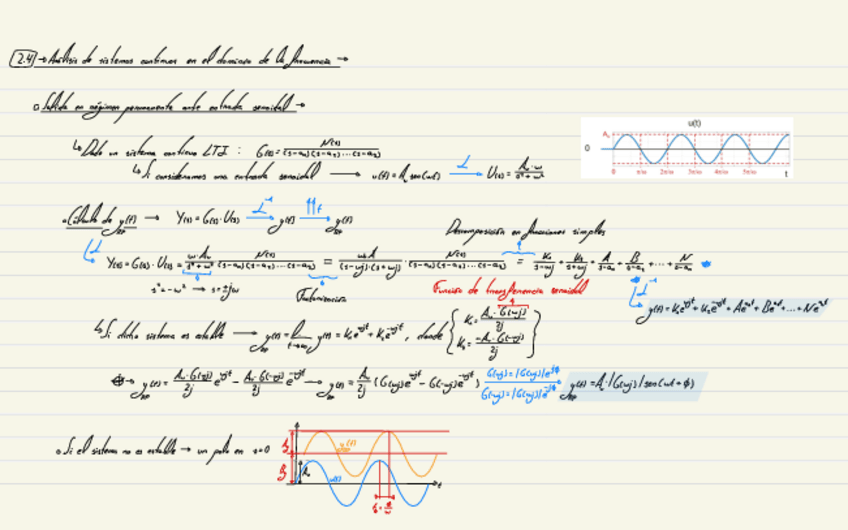 2.4 → Análisis de sistemas continuos en el dominio de la frecuencia →
□ Salida en régimen permanente ante entrada senoidal →
↳ Dado un sistema continuo LTI : G(s) = N(s) / (s-a₁)(s-a₂)...(s-aₙ)
↳ Si consideramos una entrada senoidal → u(t) = A₀ sen(ωt) —L→ U(s) = A₀·ω / s²+ω²
u(t)
A₀
0
0 π/ω 2π/ω 3π/ω 4π/ω 5π/ω t
Cálculo de y(t) → Y(s) = G(s)·U(s) —L⁻¹→ y(t) —↑↑t→ y(t)
Descomposición en fracciones simples
Y(s) = G(s)·U(s) = ω·A₀ / s²+ω² · N(s) / (s-a₁)(s-a₂)...(s-aₙ) = ωA / (s-ωj)·(s+ωj) · N(s) / (s-a₁)(s-a₂)...(s-aₙ) = K₁ / s-ωj + K₂ / s+ωj + A / s-a₁ + B / s-a₂ + ... + N / s-aₙ
s² = -ω² → s = ±jω
Factorización
Función de transferencia senoidal
L⁻¹
y(t) = K₁e^ωjt + K₂e^-ωjt + Ae^a₁t + Be^a₂t + ... + Ne^aₙt
↳ Si dicho sistema es estable → y(t) = lim t→∞ y(t) = K₁e^ωjt + K₂e^-ωjt , donde { K₁ = A₀·G(ωj) / 2j
K₂ = -A₀·G(-ωj) / 2j }
y(t) = A₀·G(ωj) / 2j e^ωjt - A₀·G(-ωj) / 2j e^-ωjt → y(t) = A₀ / 2j (G(ωj)e^ωjt - G(-ωj)e^-ωjt)
G(ωj) = |G(ωj)|e^jϕ
G(-ωj) = |G(ωj)|e^-jϕ
y(t) = A₀·|G(ωj)| sen(ωt+ϕ)
Si el sistema no es estable → un polo en s=0
y(t)
A₀
u(t)
t